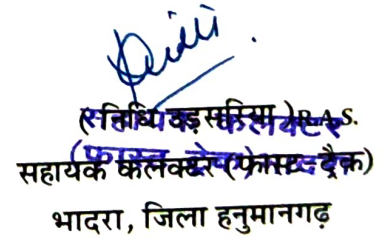 (निधि उड़सरिया) R.A.S.
सहायक कलक्टर (फास्ट ट्रैक)
भादरा, जिला हनुमानगढ़